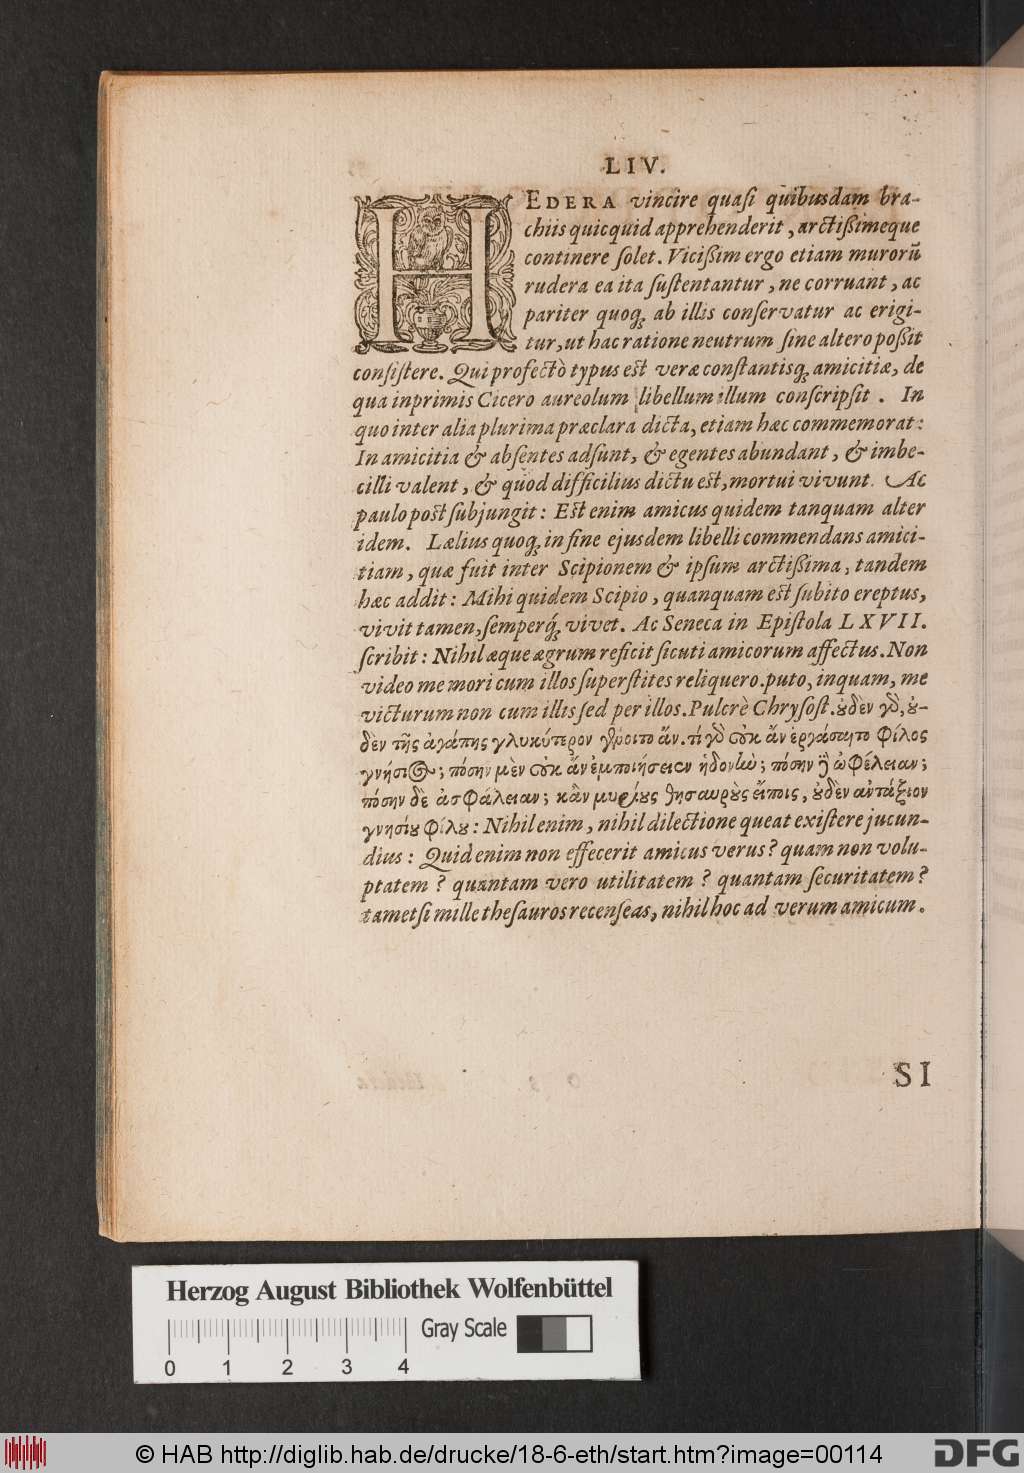 LIV.
HEDERA vincire quasi quibusdam bra-
chiis quicquid apprehenderit, arctißimeque
continere solet. Vicißim ergo etiam murorũ
rudera ea ita sustentantur, ne corruant, ac
pariter quoq; ab illis conservatur ac erigi-
tur, ut hac ratione neutrum sine altero poßit
consistere. Qui profectò typus est veræ constantisq; amicitiæ, de
qua inprimis Cicero aureolum libellum illum conscripsit. In
quo inter alia plurima præclara dicta, etiam hæc commemorat:
In amicitia & absentes adsunt, & egentes abundant, & imbe-
cilli valent, & quod difficilius dictu est, mortui vivunt. Ac
paulo post subjungit: Est enim amicus quidem tanquam alter
idem. Lælius quoq; in fine ejusdem libelli commendans amici-
tiam, quæ fuit inter Scipionem & ipsum arctißima, tandem
hæc addit: Mihi quidem Scipio, quanquam est subito ereptus,
vivit tamen, semperq́; vivet. Ac Seneca in Epistola LXVII.
scribit: Nihil æque ægrum reficit sicuti amicorum affectus. Non
video me mori cum illos superstites reliquero. puto, inquam, me
victurum non cum illis sed per illos. Pulcrè Chrysost. ȣδὲν γὸ, ȣ-
δὲν τῆς ἀγάπης γλυκύτερον γένοιτο ἄν. τί γὸ οὐκ ἄν ἐργάσαιτο φίλος
γνήσιος; πόσην μὲν οὐκ ἄν ἐμποιήσειεν ἡδονὼ; πόσην ἢ ὠφέλειαν;
πόσην δὲ ἀσφάλειαν; κἂν μυρίȣς θησαυρȣ̀ς εἴποις, ȣ̓δὲν αὐτάξιον
γνησίȣ φίλȣ: Nihil enim, nihil dilectione queat existere jucun-
dius: Quid enim non effecerit amicus verus? quam non volu-
ptatem? quantam vero utilitatem? quantam securitatem?
tametsi mille thesauros recenseas, nihil hoc ad verum amicum.
SI
Herzog August Bibliothek Wolfenbüttel
0 1 2 3 4 Gray Scale
© HAB http://diglib.hab.de/drucke/18-6-eth/start.htm?image=00114
DFG